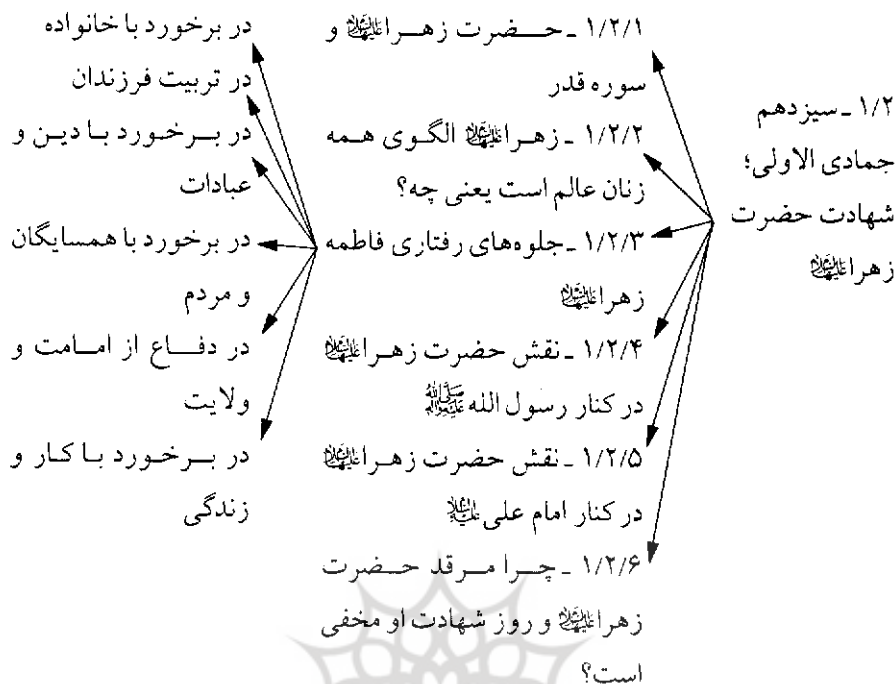 ۱/۲ ـ سیزدهم
جمادی الاولی؛
شهادت حضرت
زهرا علیهاالسلام
۱/۲/۱ ـ حـــضرت زهـــرا علیهاالسلام و
سوره قدر
۱/۲/۲ ـ زهـرا علیهاالسلام الگـوی همـه
زنان عالم است یعنی چه؟
۱/۲/۳ ـ جلوه‌های رفتاری فاطمه
زهرا علیهاالسلام
۱/۲/۴ ـ نقش حضرت زهـرا علیهاالسلام
در کنار رسول الله صلی‌الله‌علیه‌وآله
۱/۲/۵ ـ نقش حضرت زهـرا علیهاالسلام
در کنار امام علی علیه‌السلام
۱/۲/۶ ـ چـــرا مـــرقد حـــضرت
زهرا علیهاالسلام و روز شهادت او مخفی
است؟
در برخورد با خانواده
در تربیت فرزندان
در بــرخـورد بـا دیـن و
عبادات
در برخورد با همسایگان
و مردم
در دفـــاع از امـامـت و
ولایت
در بــرخـورد بـا کـار و
زندگی